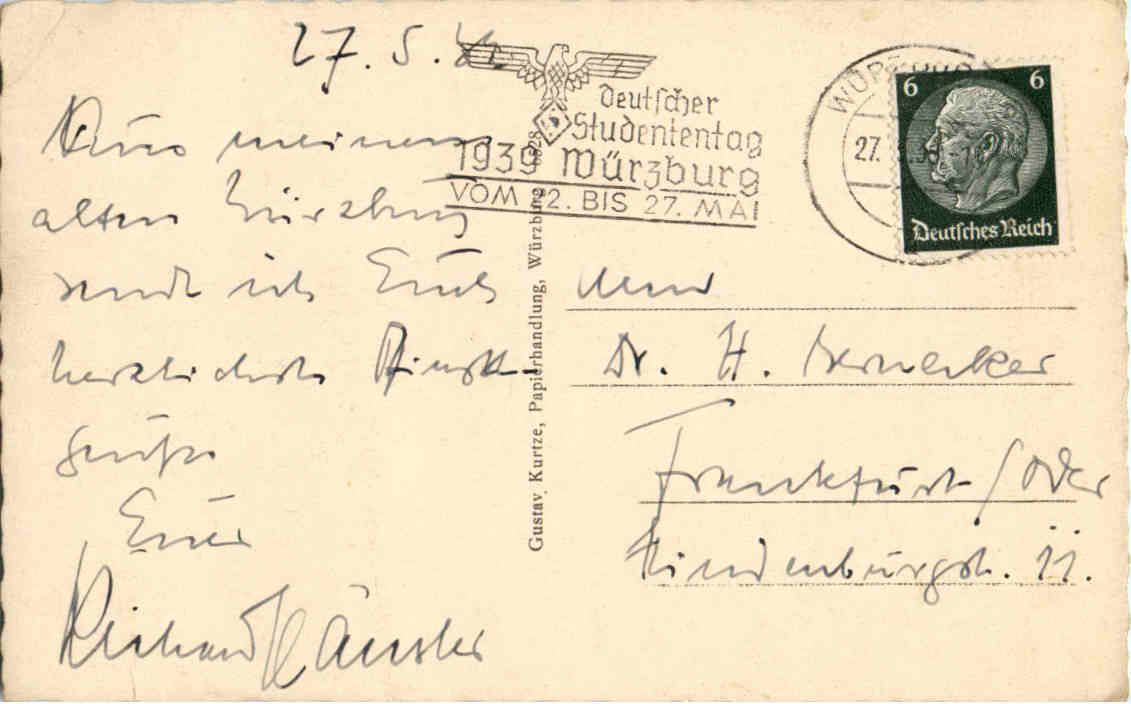 27.5.
Aus meinem
alten Würzburg
sende ich Euch
herzlichste Pfingst-
grüße
Euer
Richard
Deutscher
Studententag
1939 Würzburg
VOM 22. BIS 27. MAI
WÜRZBURG
27.
6 6
Deutsches Reich
Gustav Kurtze, Papierhandlung, Würzburg 0828
Dr. H.
Frankfurt / Oder
Hindenburgstr. 11.